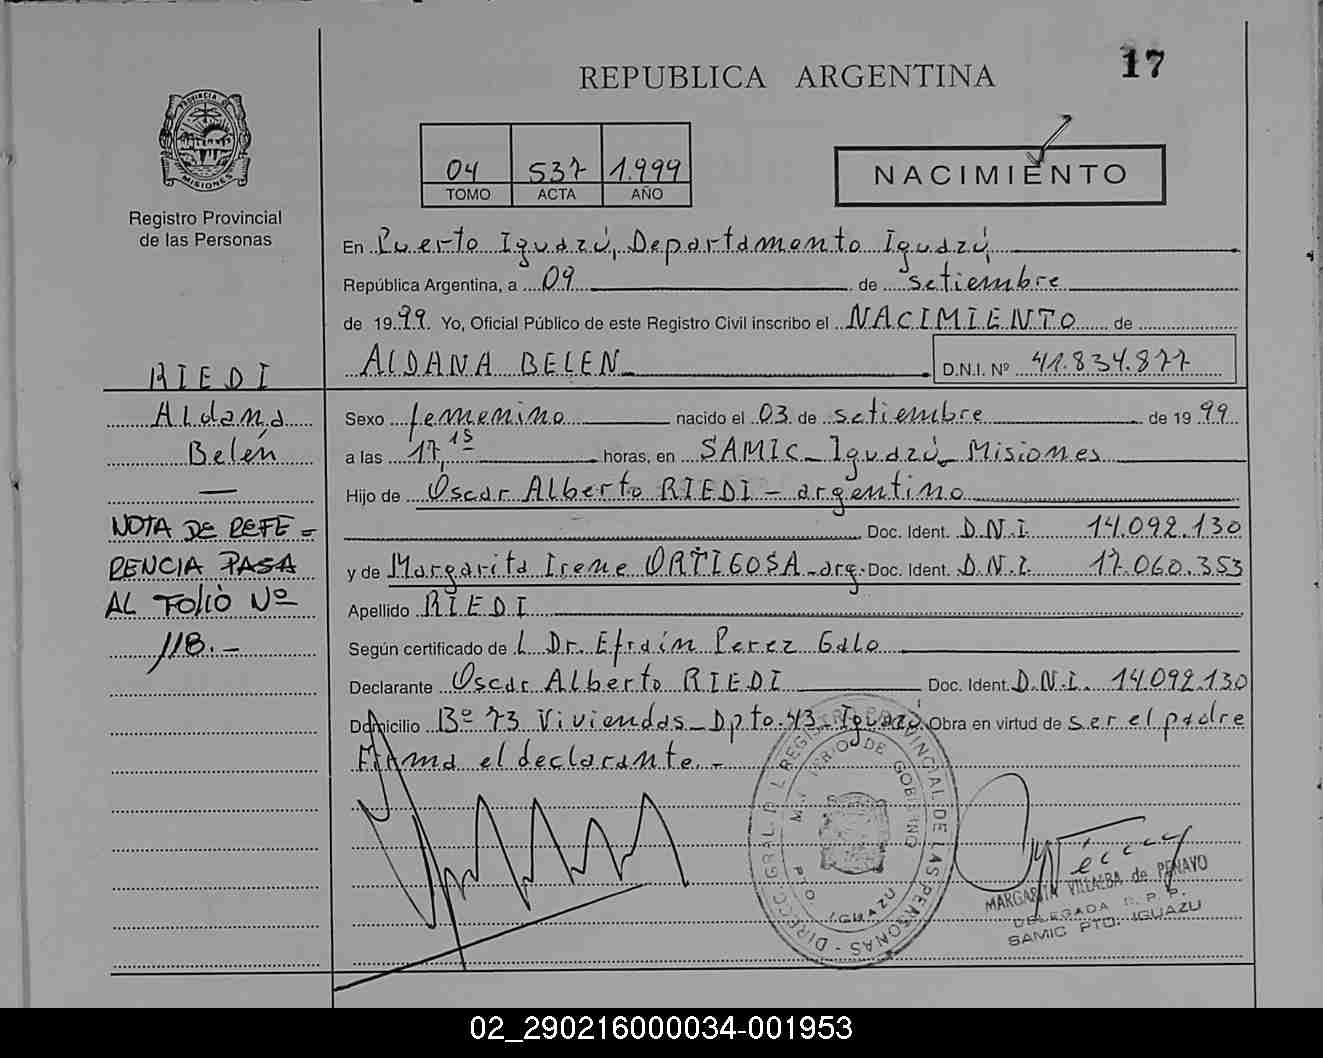 17
REPUBLICA ARGENTINA
PROVINCIA DE
MISIONES
Registro Provincial
de las Personas
04 537 1.999
TOMO ACTA AÑO
NACIMIENTO
En Puerto Iguazú, Departamento Iguazú,
República Argentina, a 09 de setiembre
de 1999. Yo, Oficial Público de este Registro Civil inscribo el NACIMIENTO de
ALDANA BELEN D.N.I. Nº 41.834.877
RIEDI
Aldana
Belén
—
NOTA DE REFE=
RENCIA PASA
AL FOLIO Nº
118.-
Sexo femenino nacido el 03 de setiembre de 1999
a las 17,15 horas, en SAMIC - Iguazú - Misiones
Hijo de Oscar Alberto RIEDI - argentino
Doc. Ident. D.N.I. 14.092.130
y de Margarita Irene ORTIGOSA - arg. Doc. Ident. D.N.I. 17.060.353
Apellido RIEDI
Según certificado de L Dr. Efraín Perez Galo
Declarante Oscar Alberto RIEDI Doc. Ident. D.N.I. 14.092.130
Domicilio Bº 73 Viviendas - Dpto. 43 - Iguazú Obra en virtud de ser el padre
Firma el declarante. -
DIRECC. GRAL. DEL REGISTRO PROVINCIAL DE LAS PERSONAS -
MINISTERIO DE GOBIERNO
PTO IGUAZU
MARGARITA VILLALBA de PENAYO
DELEGADA R. P. P.
SAMIC PTO. IGUAZU
02_290216000034-001953